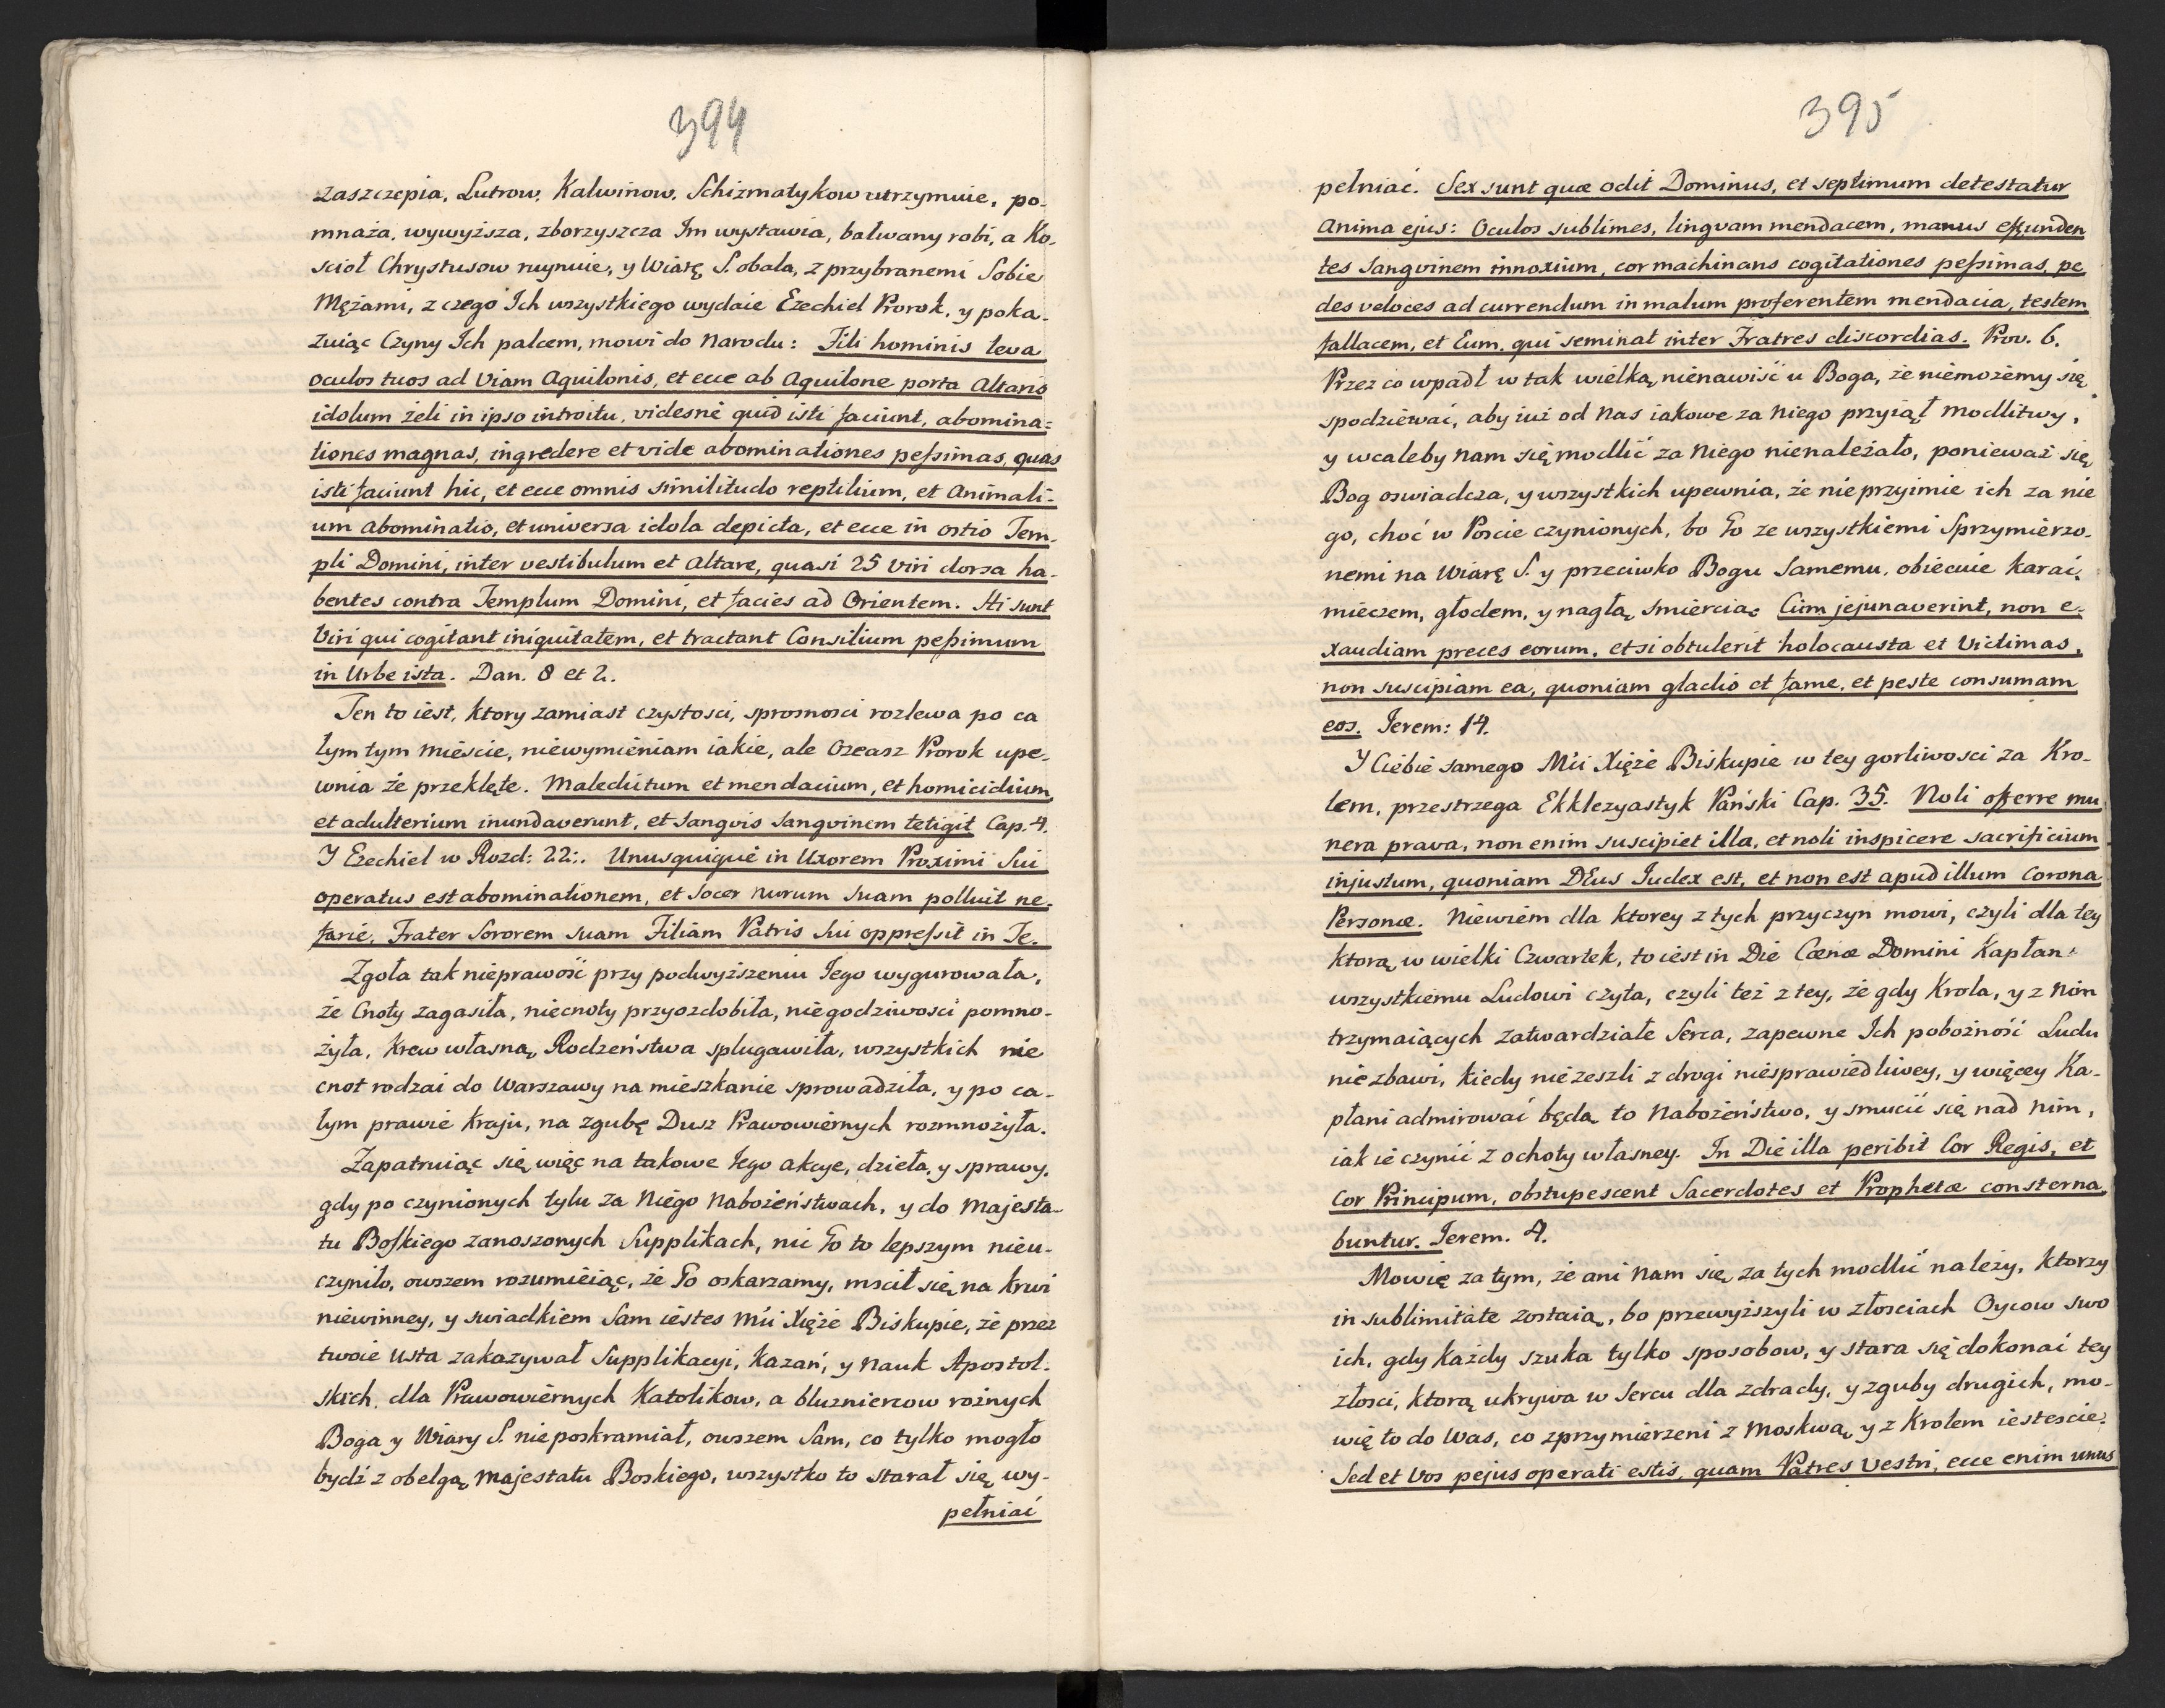 394
zaszczepia, Lutrow, Kalwinow, Schizmatykow utrzymuie, po-
mnaża, wywyższa, zborzyszcza Im wystawia, bałwany robi, a Ko-
scioł Chrystusow ruynuie, y Wiarę S. obala, z przybranemi Sobie
Mężami, z czego Ich wszystkiego wydaie Ezechiel Prorok, y poka-
zuiąc Czyny Ich palcem, mowi do Narodu: Fili hominis leva
oculos tuos ad Viam Aquilonis, et ecce ab Aquilone porta Altaris
idolum zeli in ipso introitu, videsne quid isti faciunt, abomina-
tiones magnas, ingredere et vide abominationes peſsimas, quas
isti faciunt hic, et ecce omnis similitudo reptilium, et Animali-
um abominatio, et universa idola depicta, et ecce in ostio Tem-
pli Domini, inter vestibulum et Altare, quasi 25 Viri dorsa ha-
bentes contra Templum Domini, et facies ad Orientem. Hi sunt
Viri qui cogitant iniquitatem, et tractant Consilium peſsimum
in Urbe ista. Dan. 8 et 2.
Ten to iest, ktory zamiast czystosci, sprosnosci rozlewa po ca
łym tym Mieście, niewymieniam iakie, ale Ozeasz Prorok upe-
wnia że przeklęte. Maledictum et mendacium, et homicidium
et adulterium inundaverunt, et sangvis sangvinem tetigit Cap. 4.
I Ezechiel w Rozd: 22:. Unusquique in Uxorem Proximi Sui
operatus est abominationem, et Socer Nurum suam polluit ne-
farie, Frater Sororem suam Filiam Patris Sui oppreſsit in Te.
Zgoła tak nieprawość przy podwyższeniu Iego wygurowała,
że Cnoty zagasiła, niecnoty przyozdobiła, niegodziwosci pomno-
żyła, Krew własną Rodzeństwa splugawiła, wszystkich nie
cnot rodzai do Warszawy na mieszkanie sprowadziła, y po ca-
łym prawie Kraju, na zgubę Dusz Prawowiernych rozmnożyła.
Zapatruiąc się więc na takowe Iego akcye, dzieła, y sprawy,
gdy po czynionych tylu za Niego Nabożeństwach, y do Majesta-
tu Boſkiego zanoszonych Supplikach, nic Go to lepszym nieu-
czyniło, owszem rozumieiąc, że Go oskarzamy, mscił się na krwi
niewinney, y swiadkiem Sam iestes Mći Xięże Biskupie, że przez
twoie Usta zakazywał Supplikacyi, Kazań, y Nauk Apostol-
skich, dla Prawowiernych Katolikow, a bluzniercow rożnych
Boga y Wiary S. nieposkramiał, owszem Sam, co tylko mogło
bydź z obelgą Majestatu Boskiego, wszystko to starał się wy-
pełniać
395
pełniać. Sex sunt quæ odit Dominus, et septimum detestatur
Anima ejus: Oculos sublimes, lingvam mendacem, manus effunden
tes Sangvinem innoxium, cor machinans cogitationes peſsimas, pe
des veloces ad currendum in malum proferentem mendacia, testem
fallacem, et Eum, qui seminat inter Fratres discordias. Prov. 6.
Przez co wpadł w tak wielką nienawiść u Boga, że niemożemy się
spodziewać, aby iuż od Nas iakowe za Niego przyiął Modlitwy,
y wcaleby Nam się modlić za Niego nienależało, ponieważ się
Bog oswiadcza, y wszystkich upewnia, że nieprzyimie ich za nie
go, choć w Poscie czynionych, bo Go ze wszystkiemi Sprzymierzo-
nemi na Wiarę S. y przeciwko Bogu Samemu, obiecuie Karać,
mieczem, głodem, y nagłą smiercią. Cum jejunaverint, non e-
xaudiam preces eorum, et si obtulerit holocausta et Victimas,
non suscipiam ea, quoniam gladio et fame, et peste consumam
eos. Ierem: 14.
Y Ciebie samego Mći Xięże Biskupie w tey gorliwosci za Kro-
lem, przestrzega Ekklezyastyk Pański Cap. 35. Noli offerre mu
nera prava, non enim suscipiet illa, et noli inspicere sacrificium
injustum, quoniam DEus Iudex est, et non est apud illum Corona
Personæ. Niewiem dla ktorey z tych przyczyn mowi, czyli dla tey
ktorą w wielki Czwartek, to iest in Die Cœnæ Domini Kapłan
wszystkiemu Ludowi czyta, czyli też z tey, że gdy Krola, y z Nim
trzymaiących zatwardziałe Serca, zapewne Ich pobożność Ludu
niezbawi, kiedy niezeszli z drogi niesprawiedliwey, y więcey Ka-
płani admirować będą to Nabożeństwo, y smucić się nad nim,
iak ie czynić z ochoty własney. In Die illa peribit Cor Regis, et
Cor Principum, obstupescent Sacerdotes et Prophetæ consterna
buntur. Ierem. 4.
Mowię za tym, że ani Nam się za tych modlić należy, ktorzy
in sublimitate zostaią, bo przewyższyli w złosciach Oycow swo
ich, gdy Każdy szuka tylko sposobow, y stara się dokonać tey
złosci, ktorą ukrywa w Sercu dla zdrady, y zguby drugich, mo-
wię to do Was, co zprzymierzeni z Moskwą y z Krolem iestescie.
Sed et Vos pejus operati estis, quam Patres Vestri, ecce enim unus